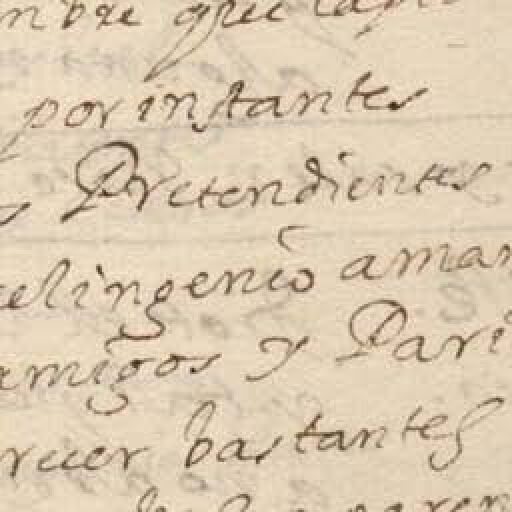 que
por instantes
s Pretendientes
elingenio aman
amigos y Pari
recer bastantes